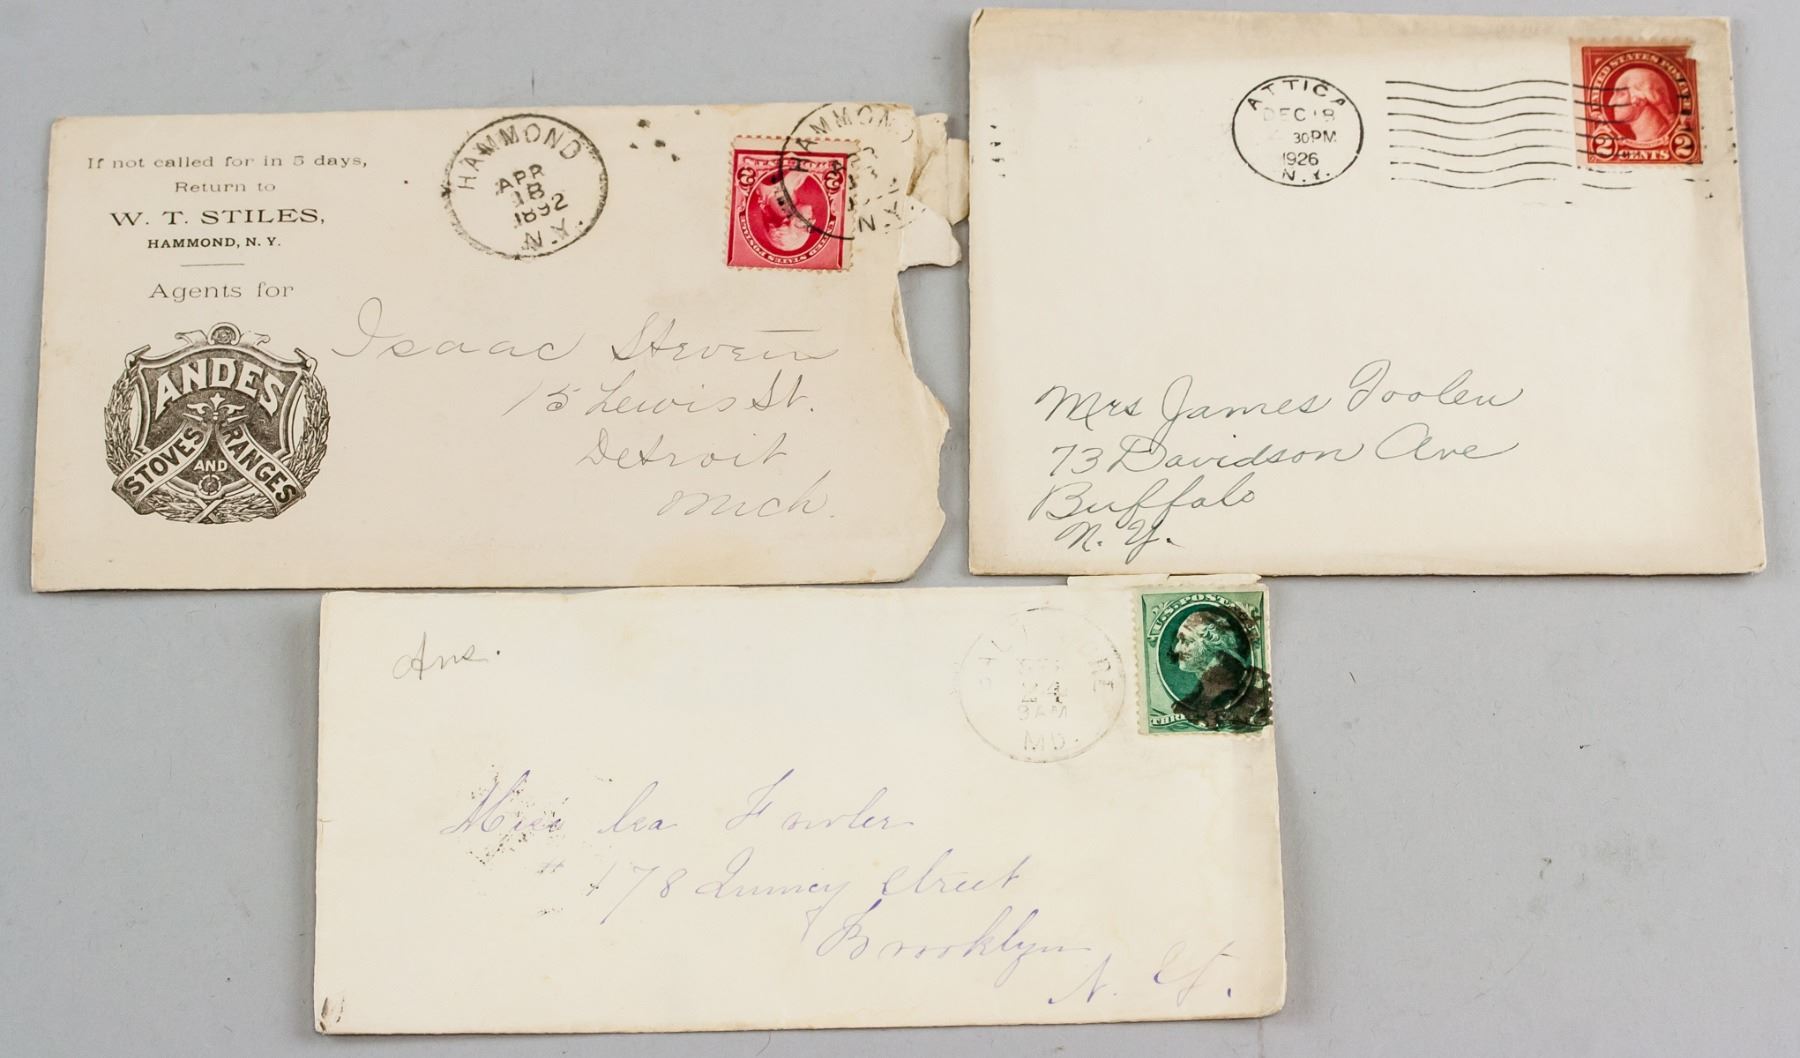 If not called for in 5 days,
Return to
W. T. STILES,
HAMMOND, N. Y.
Agents for
ANDES
STOVES AND RANGES
HAMMOND
APR
18
1892
N.Y.
2 2
UNITED STATES POSTAGE
HAMMOND
N.Y.
Isaac Steven
15 Lewis St.
Detroit
Mich.
ATTICA
DEC 18
30PM
1926
N.Y.
UNITED STATES POST
2 CENTS 2
Mrs James Toolen
73 Davidson Ave
Buffalo
N. Y.
Ans.
24
9AM
MD.
U.S. POST
THR
Miss Fowler
# 178 Quincy Street
Brooklyn
N. Y.